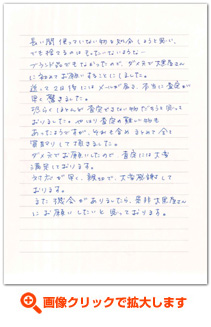 長い間使っていない物を処分しようと思い、
でも捨てるのはもったいないような…
ブランド品でもなかったので、ダメ元で大黒屋さん
に初めてお願いすることにしました。
送って2日後にはメールが届き、本当に査定が
早く驚きました。
恐らくほとんど査定がつかない物だろうと思って
おりました。やはり査定の難しい物も
あったようですが、それも含めまとめて全て
買取りして頂きました。
ダメ元でお願いしたので査定には大変
満足しております。
対応が早く、親切で、大変感謝して
おります。
また機会がありましたら、是非大黒屋さん
にお願いしたいと思っております。
画像クリックで拡大します